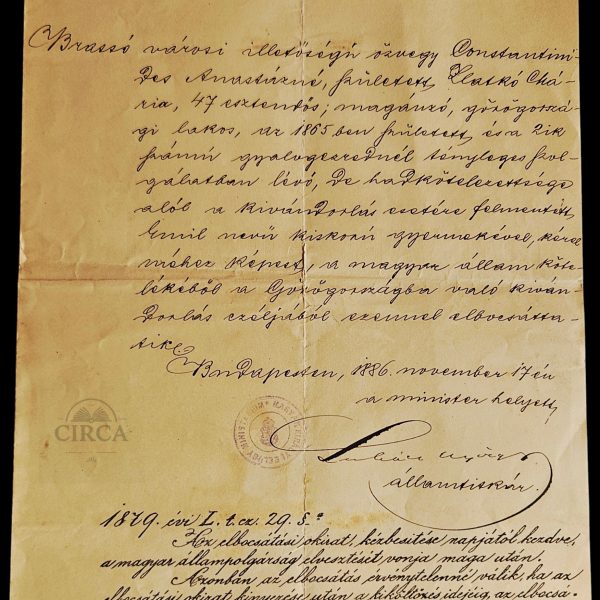 Brassó városi illetőségű özvegy Constantini-
des Anastázné, született Zlatkó Mária, 47 esztendős; magánzó, görögorszá-
gi lakos, az 1865 ben született, és a 2ik
számú gyalogezrednél tényleges szol-
gálatban lévő, de hadkötelezettsége
alól a kivándorlás esetére felmentett,
Emil nevű kiskorú gyermekével, kérel-
méhez képest, a magyar állam köte-
lékéből a Görögországba való kiván-
dorlás czéljából ezennel elbocsátta-
tik.
Budapesten, 1886. november 17 én
a minister helyett,
államtitkár.
CIRCA
1879. évi L. t. cz. 29. §.
Az elbocsátási okirat, kézbesítése napjától kezdve,
a magyar állampolgárság elvesztését vonja maga után.
Azonban az elbocsátás érvénytelenné válik, ha az
elbocsátási okirat kinyerése után a kiköltözés idejéig, az elbocsá-